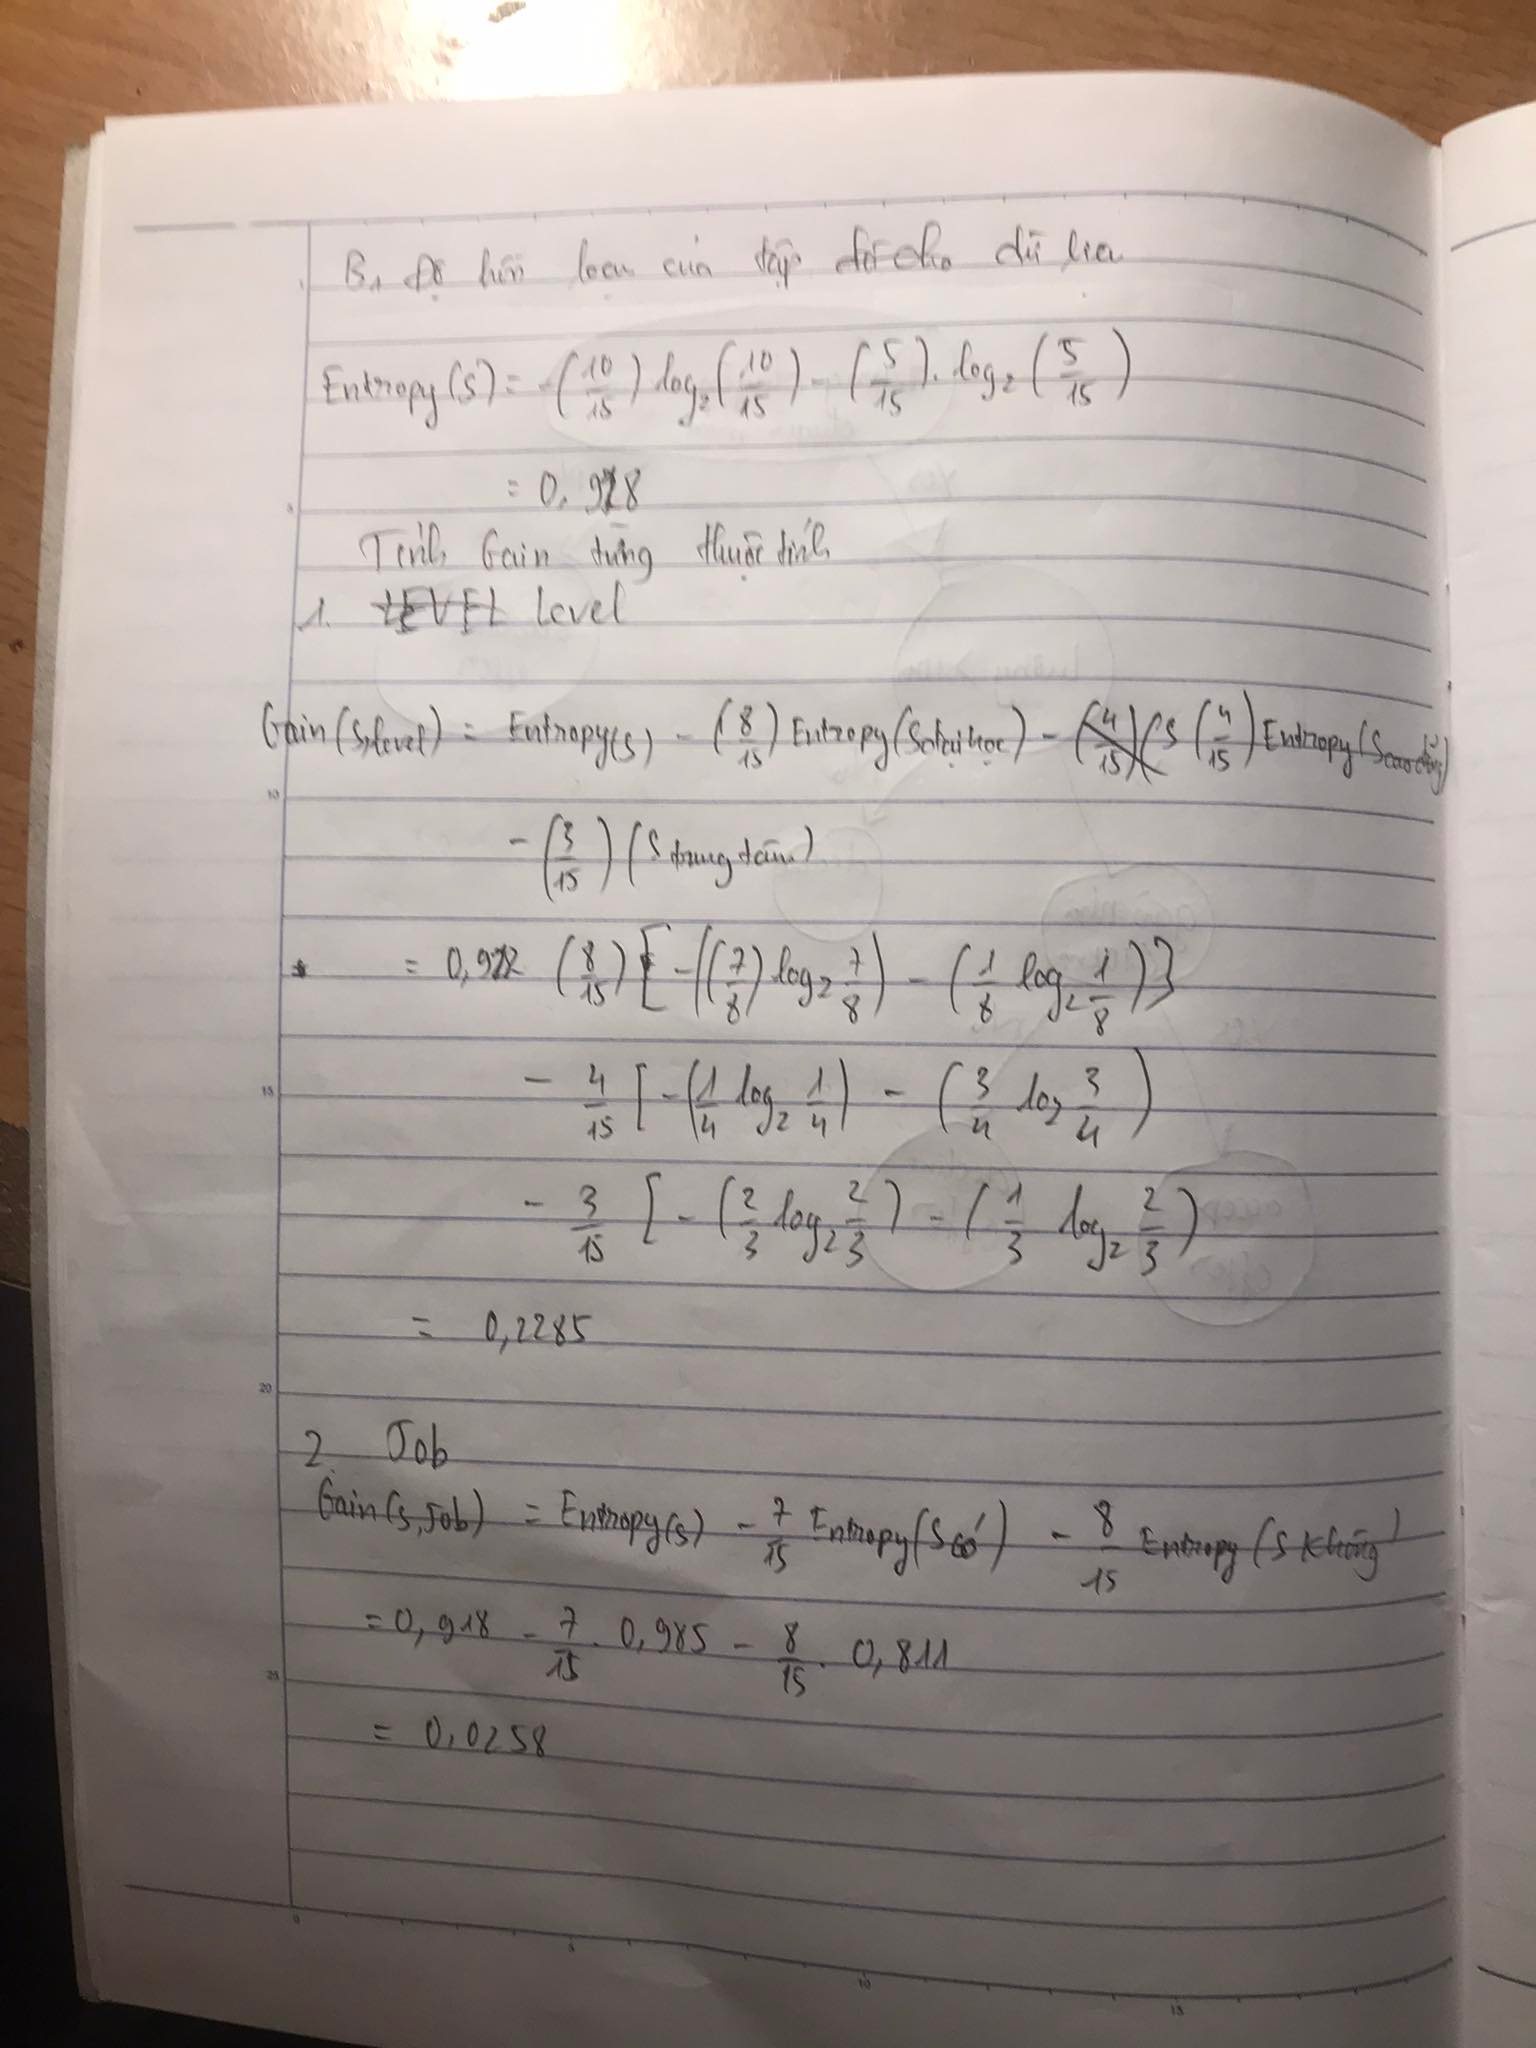 B1 Độ hỗn loạn của tập dữ liệu
Entropy(S) = -(10/15) log₂(10/15) - (5/15). log₂(5/15)
= 0,918
Tính Gain từng thuộc tính
1. LEVEL Level
Gain(S,level) = Entropy(S) - (8/15) Entropy(Sđại học) - (4/15)(S (4/15) Entropy(Scao đẳng)
- (3/15) (Strung tâm)
= 0,912 (8/15) [-((7/8) log₂ 7/8) - (1/8 log₂ 1/8)]
- 4/15 [-(1/4 log₂ 1/4) - (3/4 log 3/4)
- 3/15 [-(2/3 log₂ 2/3) - (1/3 log₂ 2/3)
= 0,2285
2. Job
Gain(S,Job) = Entropy(S) - 7/15 Entropy(Scó) - 8/15 Entropy(S Không)
= 0,918 - 7/15 . 0,985 - 8/15 . 0,811
= 0,0258
5
10
15
20
25
0
5
10
15